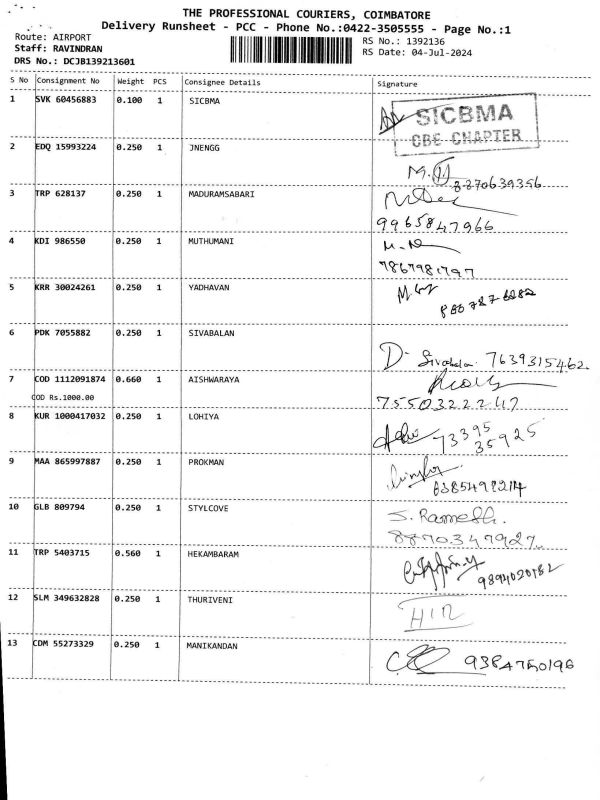 THE PROFESSIONAL COURIERS, COIMBATORE
Delivery Runsheet - PCC - Phone No.:0422-3505555 - Page No.:1
Route: AIRPORT
RS No.: 1392136
Staff: RAVINDRAN
RS Date: 04-Jul-2024
DRS No.: DCJB139213601
S No Consignment No Weight PCS Consignee Details Signature
1 SVK 60456883 0.100 1 SICBMA
SICBMA
CBE CHAPTER
2 EDQ 15993224 0.250 1 JNENGG
3 TRP 628137 0.250 1 MADURAMSABARI
9965847966
4 KDI 986550 0.250 1 MUTHUMANI
5 KRR 30024261 0.250 1 YADHAVAN
6 PDK 7055882 0.250 1 SIVABALAN
D. Sivabalan 7639315462
7 COD 1112091874 0.660 1 AISHWARAYA
COD Rs.1000.00
8 KUR 1000417032 0.250 1 LOHIYA
73395
35925
9 MAA 865997887 0.250 1 PROKMAN
10 GLB 809794 0.250 1 STYLCOVE
S. Ramesh.
8870347927
11 TRP 5403715 0.560 1 HEKAMBARAM
9894020182
12 SLM 349632828 0.250 1 THURIVENI
13 CDM 55273329 0.250 1 MANIKANDAN
9384750196